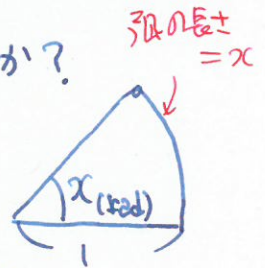 か?
弧の長さ
= x
x (rad)
1